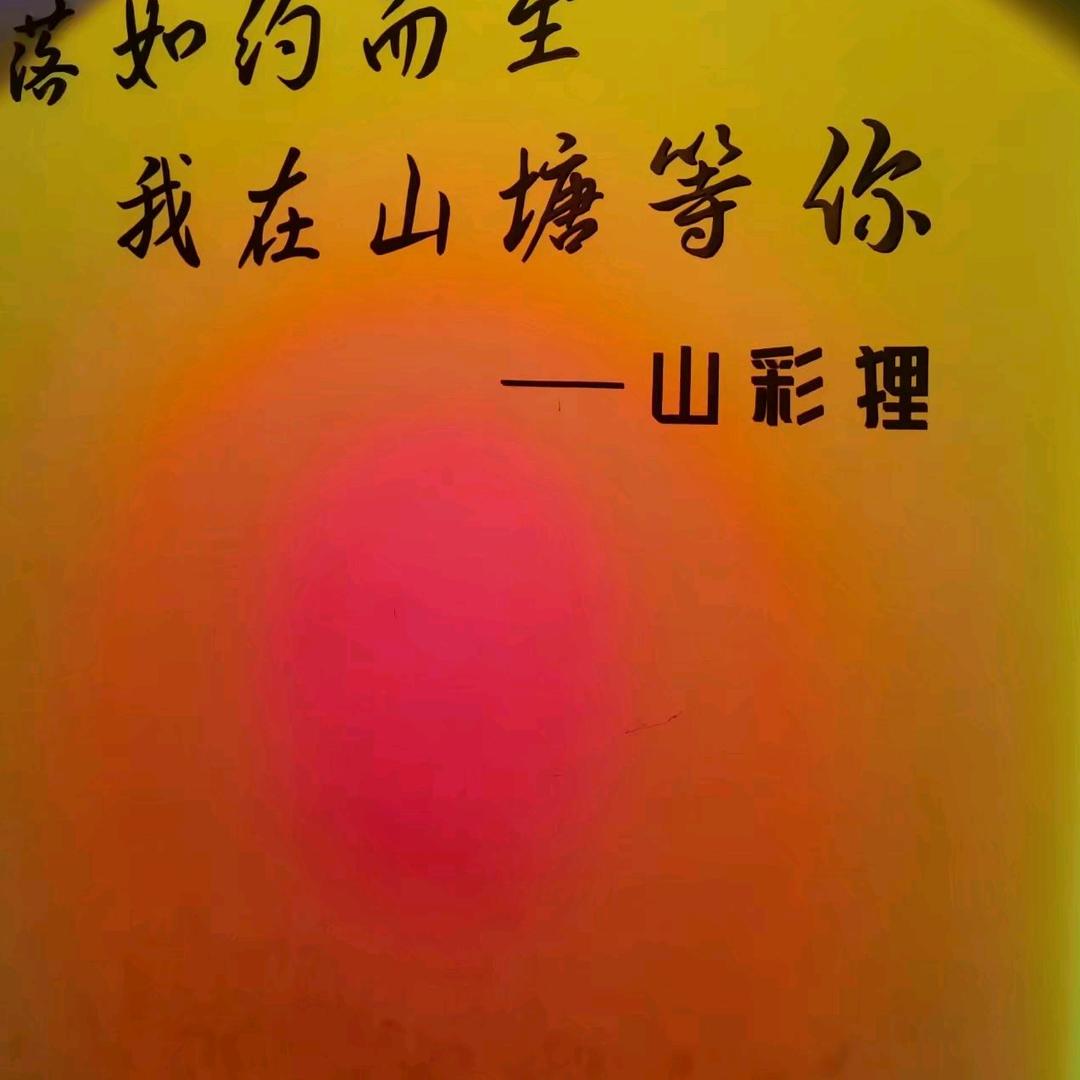 落如约而至
我在山塘等你
——山彩裡